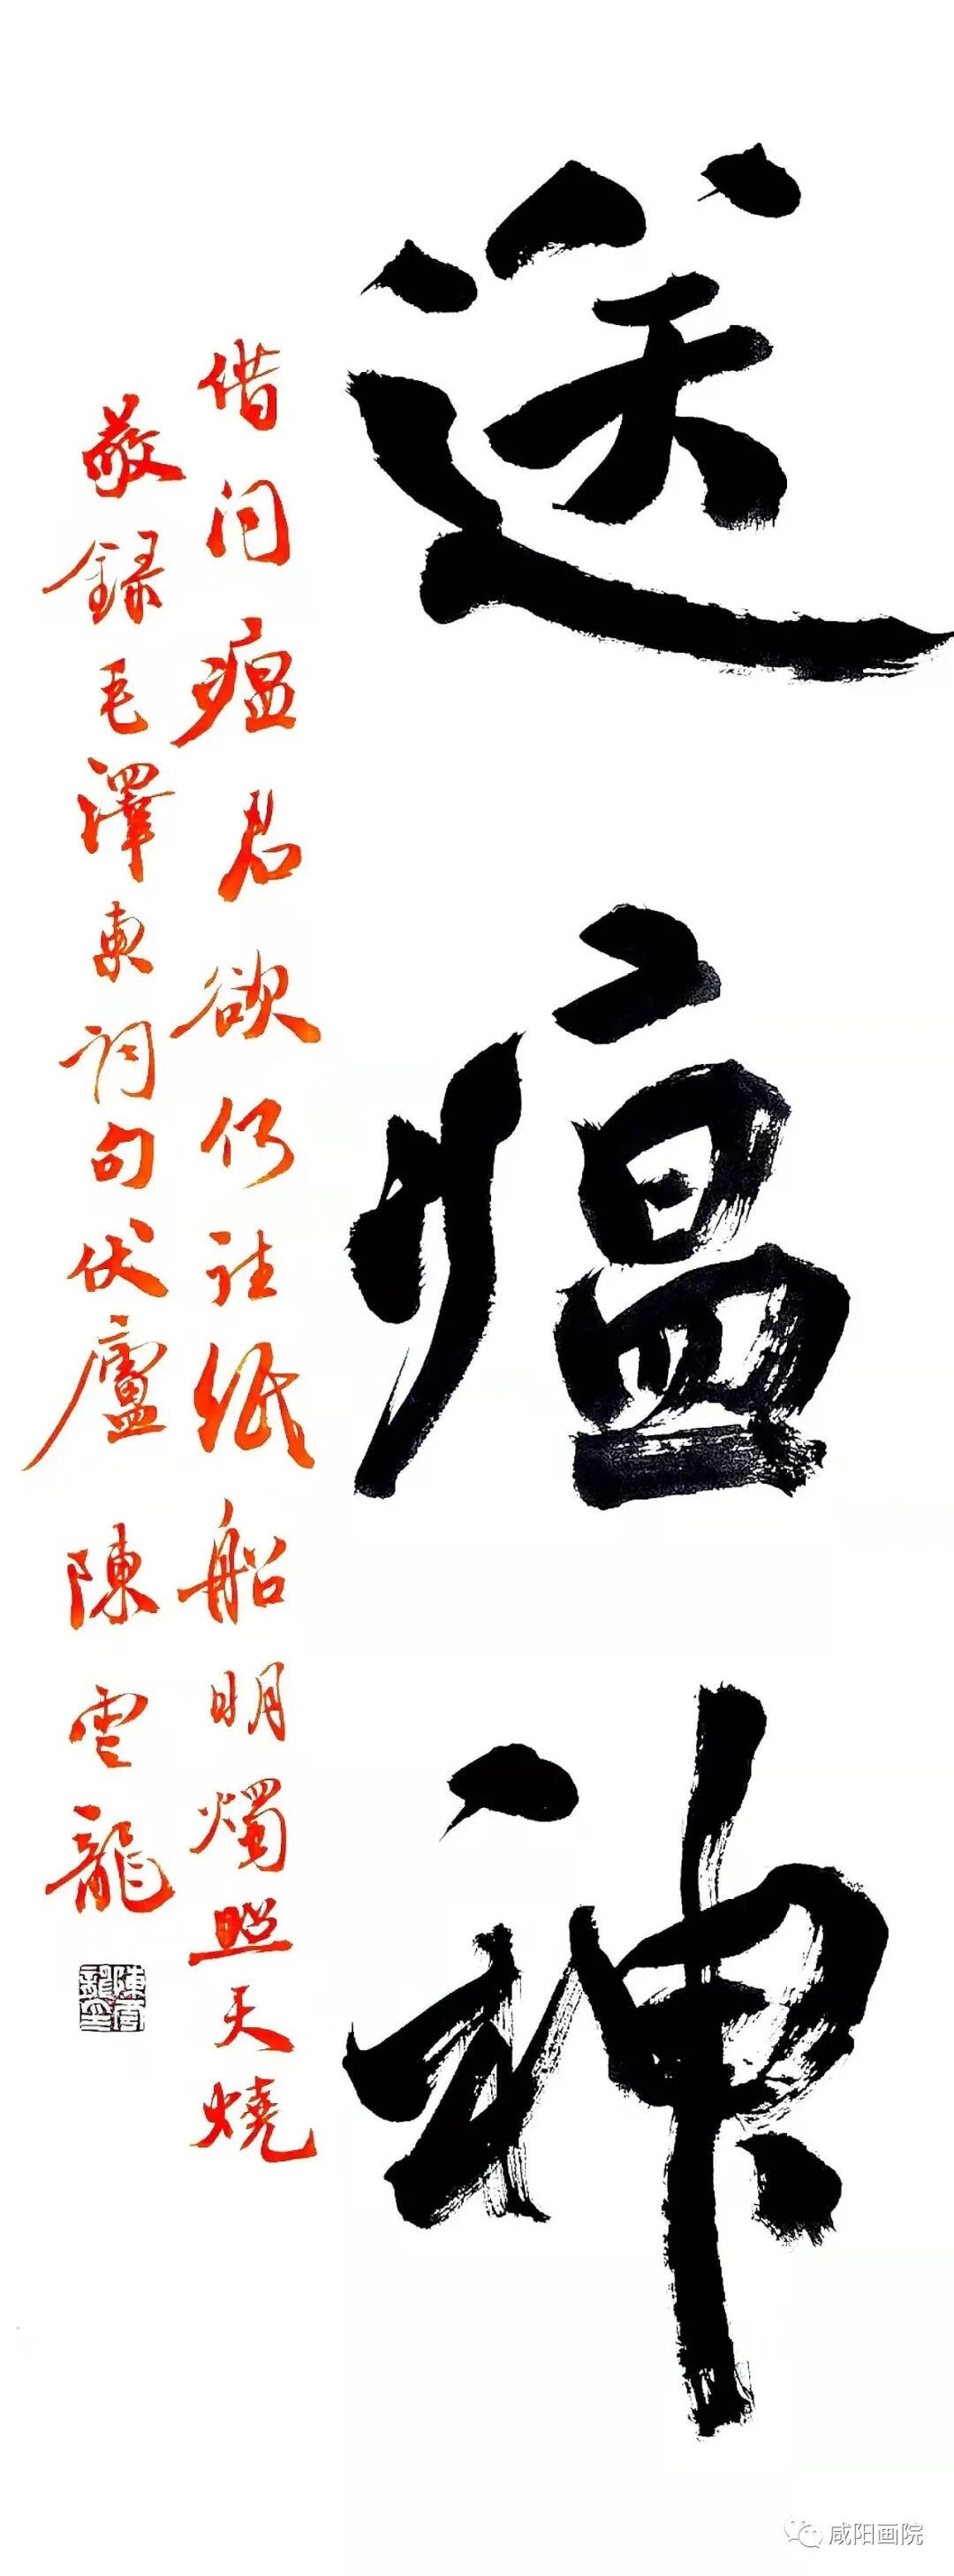 送瘟神
借问瘟君欲何往紙船明燭照天燒
敬録毛澤東詞句伏廬陳雲龍
陳雲龍印
咸阳画院